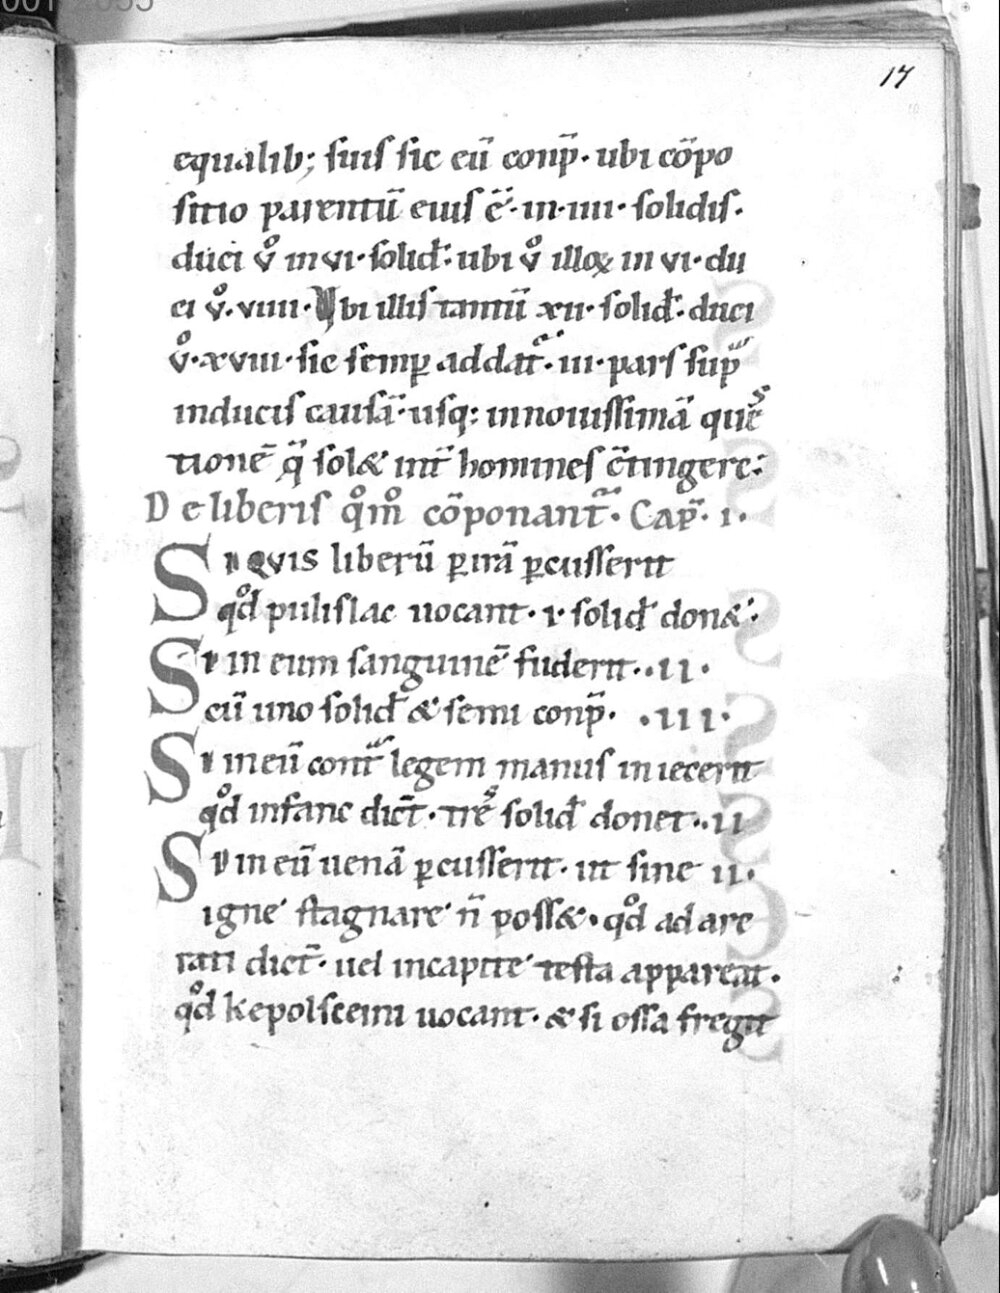 17
equalib; suis sic cū conp̄· ubi cōpo
sitio parentū eius ē· in·iiii· solidis·
duci v̊ in vi· solid̄· ubi v̊ illoꝝ in vi· du
ci v̊· viiii· Ubi illis tantū xii· solid̄· duci
v̊· xviii· sic semꝑ addat᷑· iii· pars sup̄
inducis causā· usq; in nouissimā quęs
tionē q̄ solꝫ int̄ homines c̄tingere:
De liberis q̊m̊ cōponant᷑· Cap̄· i·
SI QVIS liberū ꝑ irā ꝑcusserit
qd̊ pulislac uocant· i· solid̄ donꝫ·
Si in eum sanguinē fuderit· ·ii·
cū uno solid̄ & semi conp̄· ·iii·
Si in eū cont̄ legem manus iniecerit
qd̊ infanc dic̄t· tres solid̄ donet· ·ii
Si in eū uenā ꝑcusserit· ut sine ii·
igne stagnare n̄ poss&· qd̊ ad are
rati dic̄t· uel in capite testa appareat·
qd̊ kepolsceini uocant· & si ossa fregit